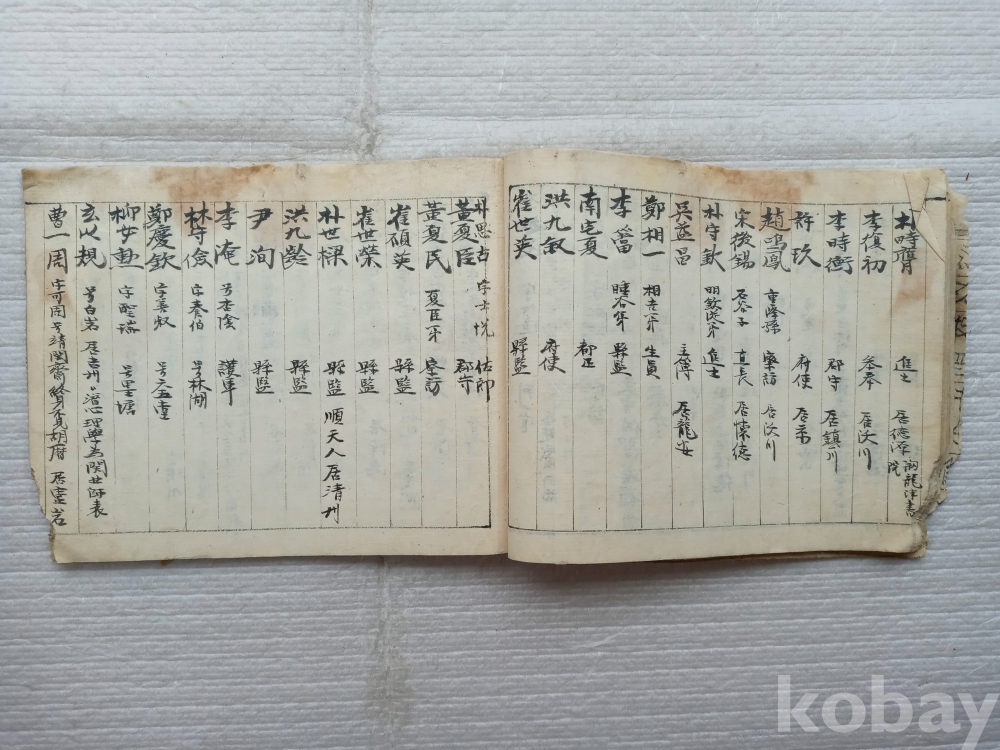 朴時䕃 進士 居德源 湖龍津書院
李復初 參奉 居沃川
李時衡 郡守 居鎮川
許玖 府使 居京
趙鳴鳳 重峰孫 察訪 居沃川
宋後錫 石谷子 直長 居懷德
朴守欽 明欽從弟 進士
吳益昌 主簿 居龍安
鄭相一 相吉弟 生員
李簹 睡谷弟 縣監
南宅夏 都正
洪九敍 府使
崔世英 縣監
朴思古 字士悅 佐郎
黃夏臣 郡守
黃夏民 夏臣弟 察訪
崔碩英 縣監
崔世榮 縣監
朴世樑 縣監 順天人居清州
洪九齡 縣監
尹洵 縣監
李淹 號杏陰 護軍
林守儉 字泰伯 號林湖
鄭慶欽 字善叔 號六五堂
柳世勳 字聖瑞 號星塘
玄以規 號白岩 居吉州 潛心理學爲関世師表
曹一周 字可用 號靖閑齋 終身不覓胡曆 居靈岩
kobay